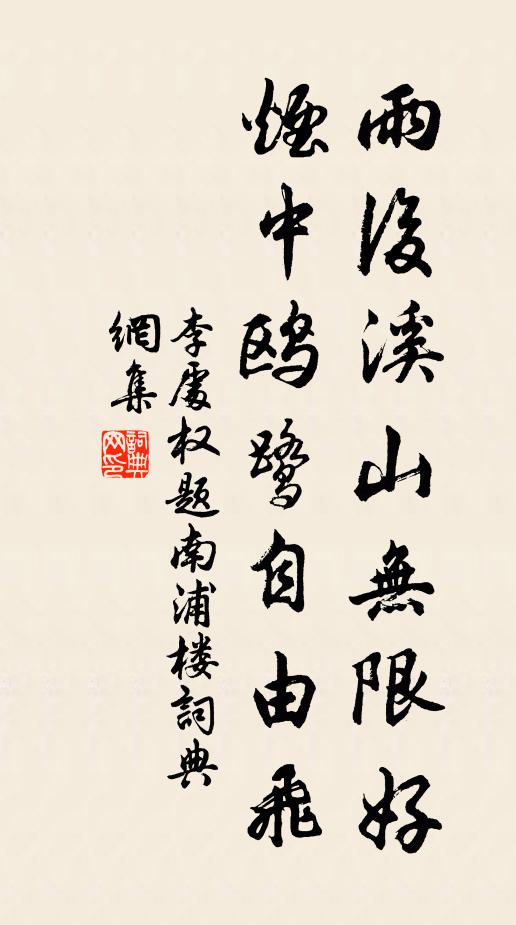 雨後溪山無限好
煙中鸥鷺自由飛
李處权题南浦楼詞典
網集
詞典
网印